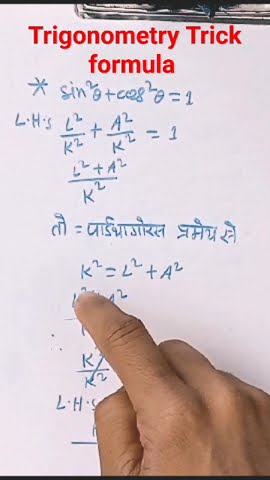 Trigonometry Trick
formula
* sin²θ+cos²θ=1
L.H.S L²/K² + A²/K² = 1
L²+A²/K²
तो = पाईथागोरस प्रमेय से
K² = L² + A²
L²+A²
K²/K²
L.H.S